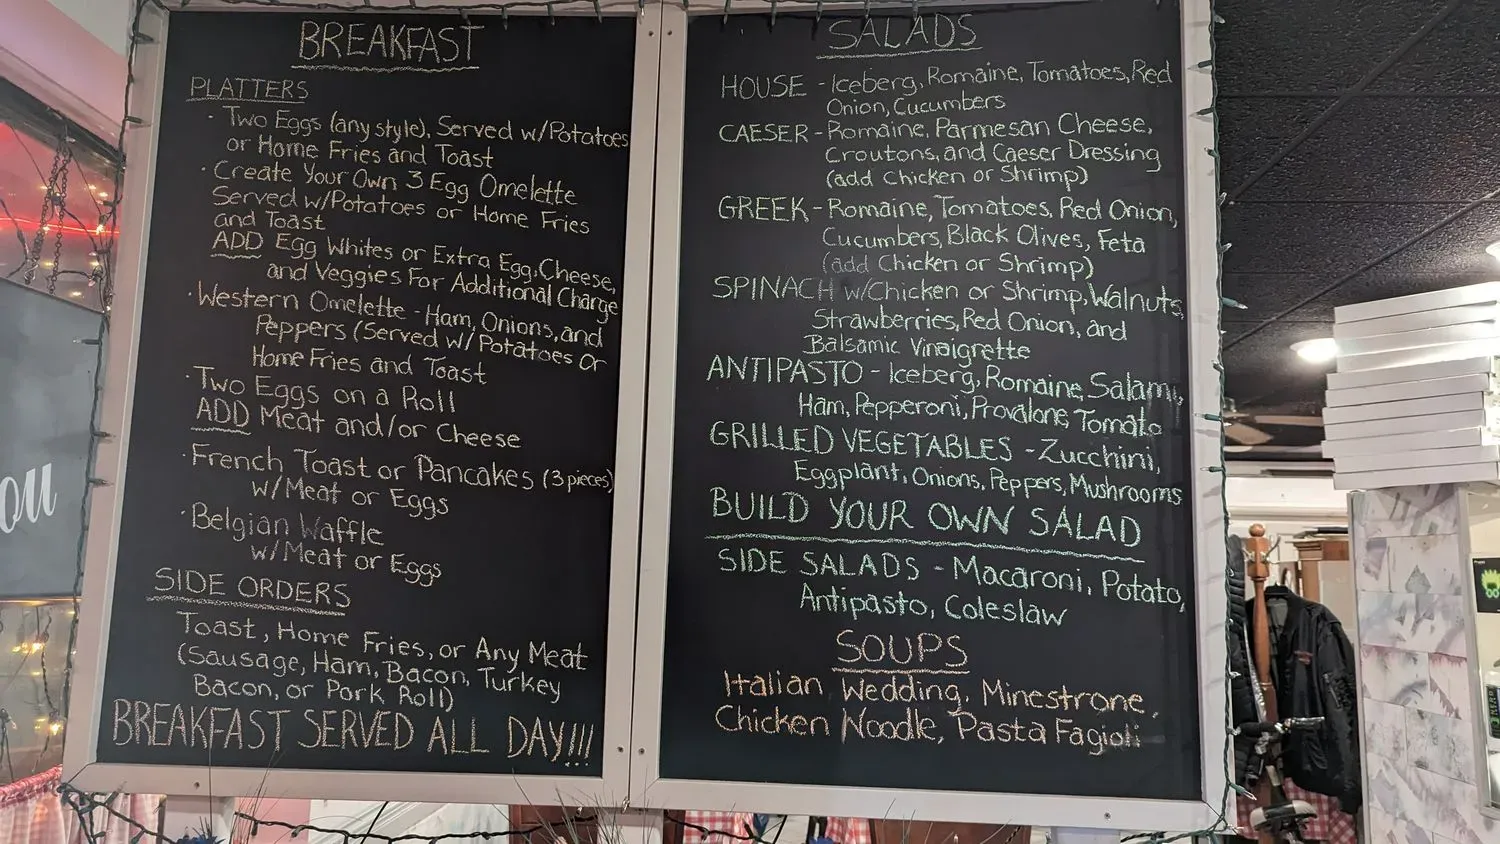 BREAKFAST
PLATTERS
· Two Eggs (any style), Served w/Potatoes
or Home Fries and Toast
· Create Your Own 3 Egg Omelette
Served w/Potatoes or Home Fries
and Toast
ADD Egg Whites or Extra Egg, Cheese,
and Veggies For Additional Charge
· Western Omelette - Ham, Onions, and
Peppers (Served w/Potatoes or
Home Fries and Toast
· Two Eggs on a Roll
ADD Meat and/or Cheese
· French Toast or Pancakes (3 pieces)
w/Meat or Eggs
· Belgian Waffle
w/Meat or Eggs
SIDE ORDERS
Toast, Home Fries, or Any Meat
(Sausage, Ham, Bacon, Turkey
Bacon, or Pork Roll)
BREAKFAST SERVED ALL DAY!!!
SALADS
HOUSE - Iceberg, Romaine, Tomatoes, Red
Onion, Cucumbers
CAESER - Romaine, Parmesan Cheese,
Croutons, and Caeser Dressing
(add Chicken or Shrimp)
GREEK - Romaine, Tomatoes, Red Onion,
Cucumbers, Black Olives, Feta
(add Chicken or Shrimp)
SPINACH w/Chicken or Shrimp, Walnuts,
Strawberries, Red Onion, and
Balsamic Vinaigrette
ANTIPASTO - Iceberg, Romaine, Salami,
Ham, Pepperoni, Provalone, Tomato
GRILLED VEGETABLES - Zucchini,
Eggplant, Onions, Peppers, Mushrooms
BUILD YOUR OWN SALAD
SIDE SALADS - Macaroni, Potato,
Antipasto, Coleslaw
SOUPS
Italian Wedding, Minestrone,
Chicken Noodle, Pasta Fagioli
ou